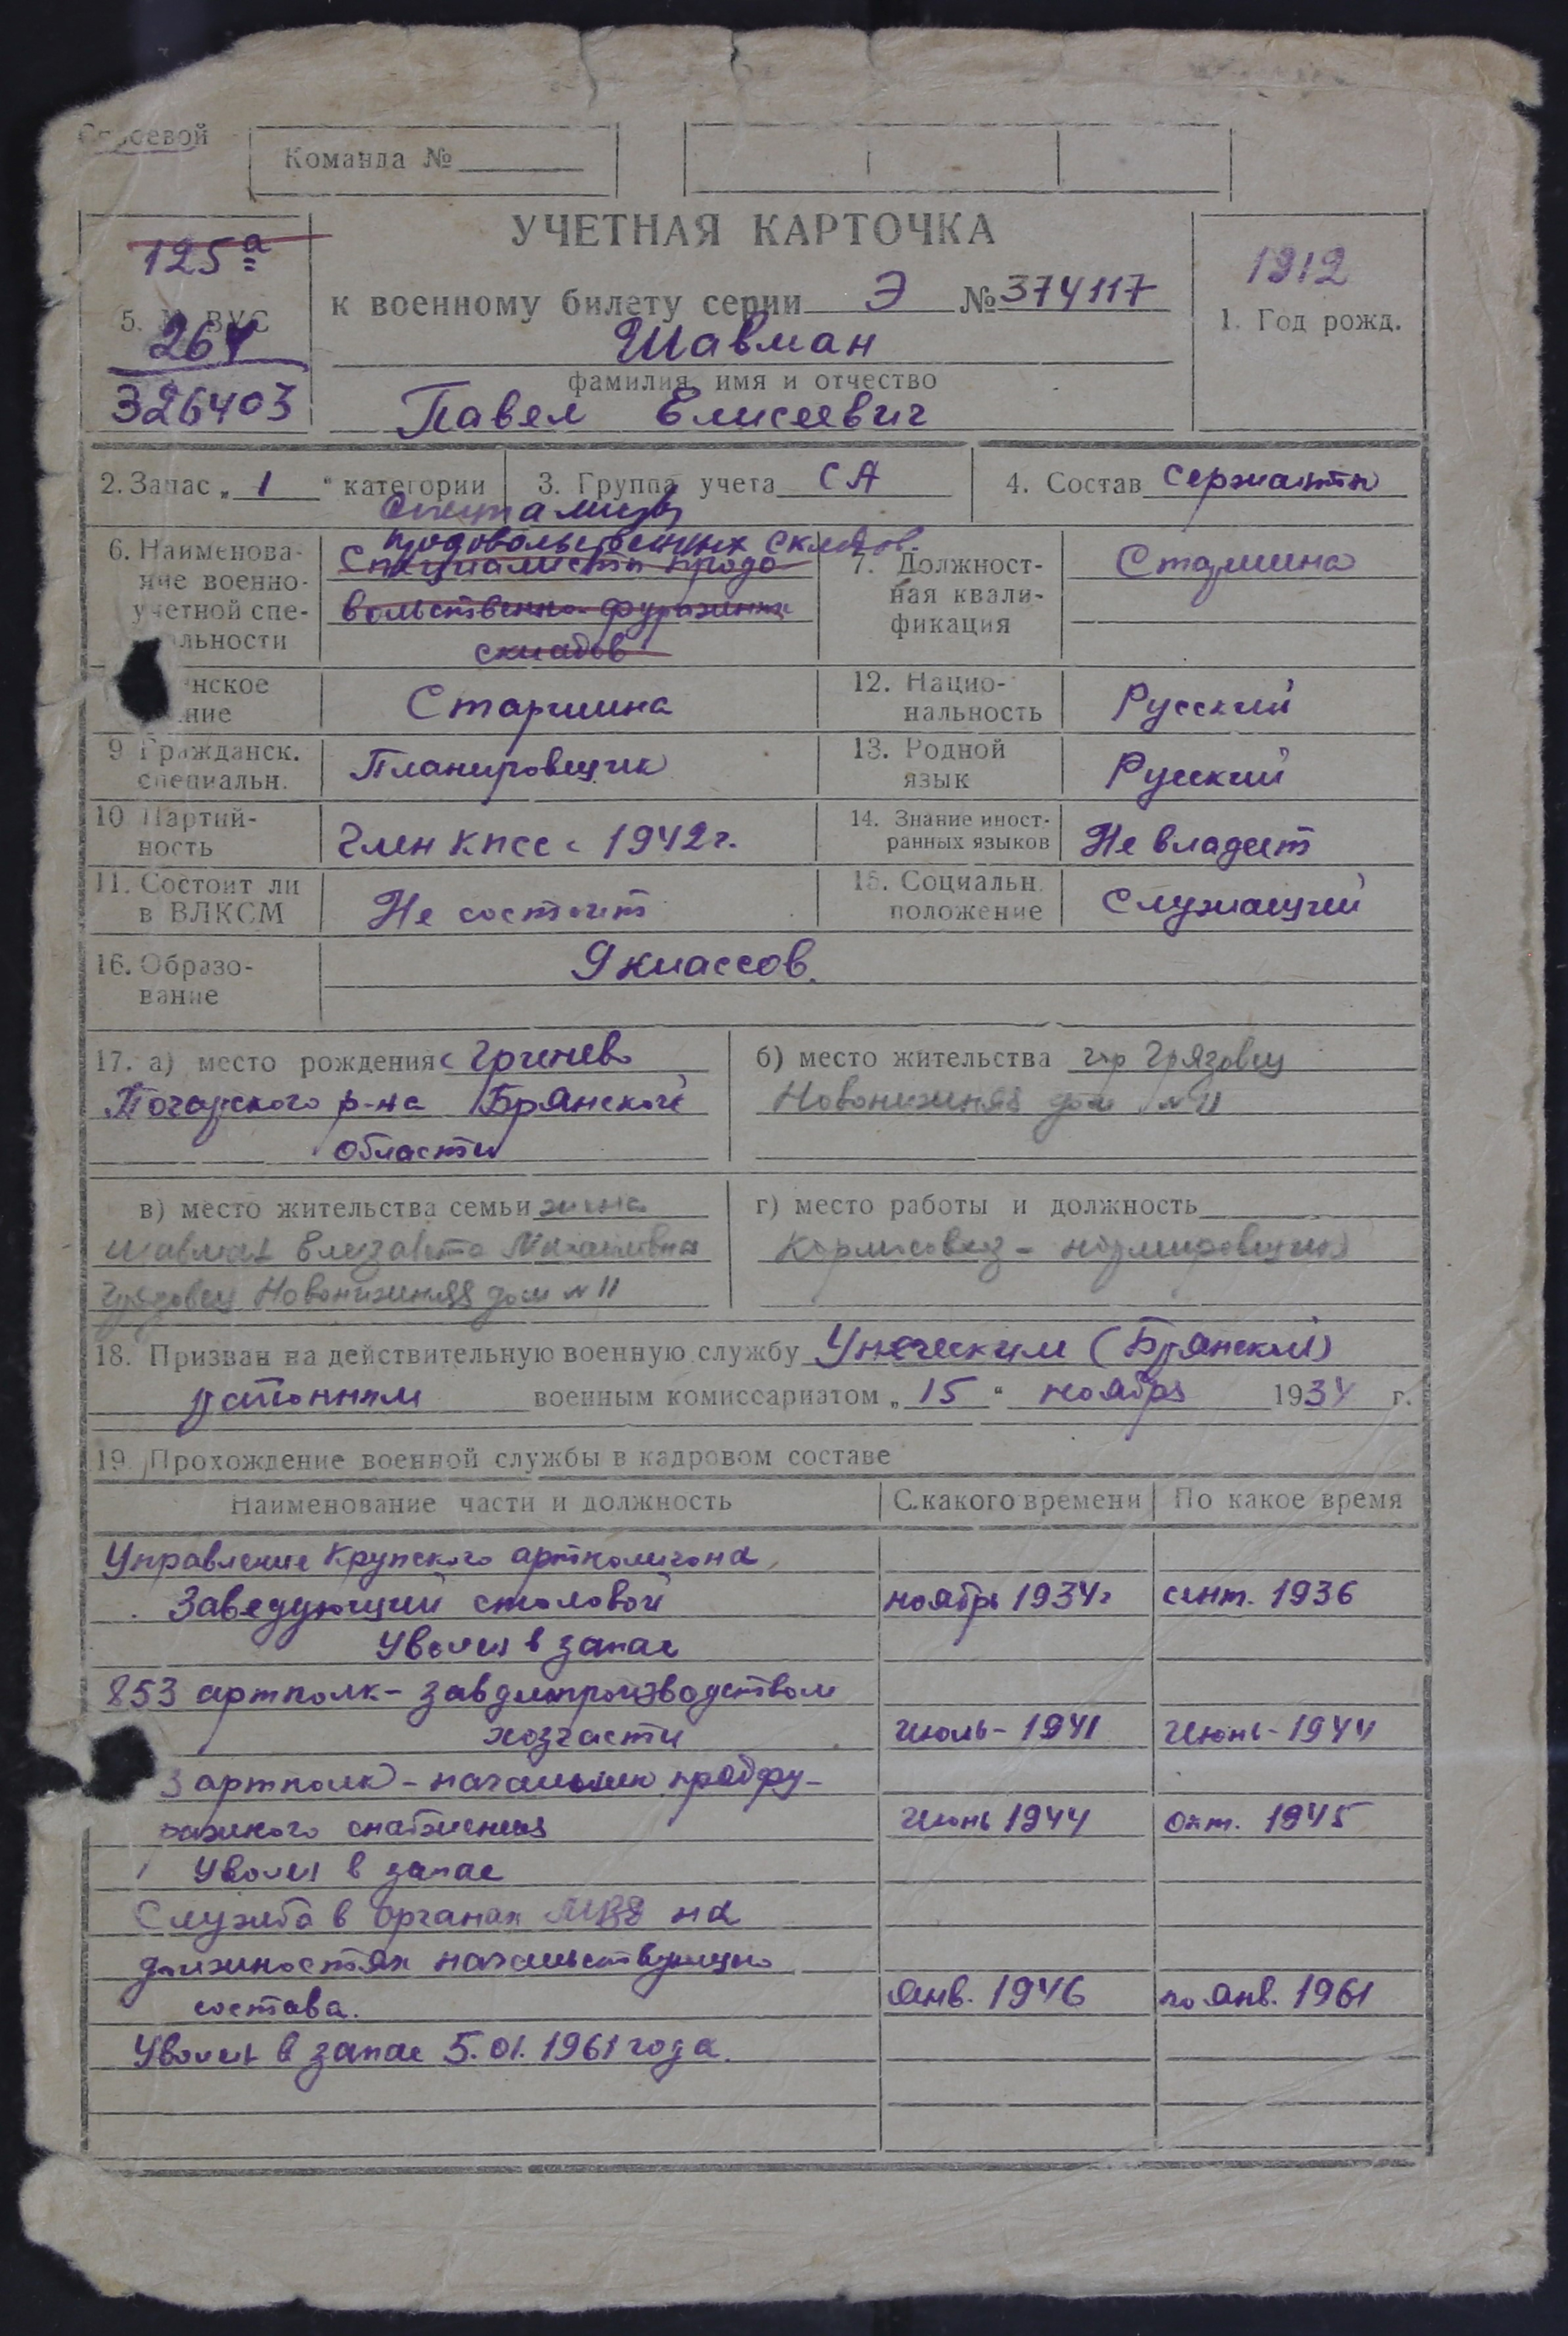 Строевой
Команда №
УЧЕТНАЯ КАРТОЧКА
125а
к военному билету серии Э № 374117
1912
1. Год рожд.
5. № ВУС
264
326403
Шавман
фамилия, имя и отчество
Павел Елисеевич
2. Запас „ 1 “ категории
3. Группа учета СА
4. Состав Сержанты
6. Наименова-
ние военно-
учетной спе-
альности
Специалисты
продовольственных складов
Специалисты продо-
вольственно-фуражных
складов
7. Должност-
ная квали-
фикация
Старшина
нское
ние
Старшина
12. Нацио-
нальность
Русский
9 Гражданск.
специальн.
Планировщик
13. Родной
язык
Русский
10 Партий-
ность
Член КПСС с 1942 г.
14. Знание иност-
ранных языков
Не владеет
11. Состоит ли
в ВЛКСМ
Не состоит
15. Социальн.
положение
Служащий
16. Образо-
вание
9 классов.
17. а) место рождения с Гриневo
Погарского р-на Брянской
области
б) место жительства гор Грязовец
Новонижняя дом №11
в) место жительства семьи жена
Шавман Елизавета Михайловна
Грязовец Новонижняя дом №11
г) место работы и должность
нормировщик
18. Призван на действительную военную службу Унечским (Брянской)
районным военным комиссариатом „ 15 “ ноября 1934 г.
19. Прохождение военной службы в кадровом составе
Наименование части и должность С какого времени По какое время
Управление Крупского артполигона,
Заведующий столовой ноябрь 1934 г сент. 1936
Уволен в запас
853 артполк - завделопроизводством
хозчасти Июль - 1941 Июнь - 1944
3 артполк - начальник продфу-
ражного снабжения Июнь 1944 окт. 1945
Уволен в запас
Служба в органах МВД на
должностях начальствующего
состава. Янв. 1946 по янв. 1961
Уволен в запас 5.01.1961 года.